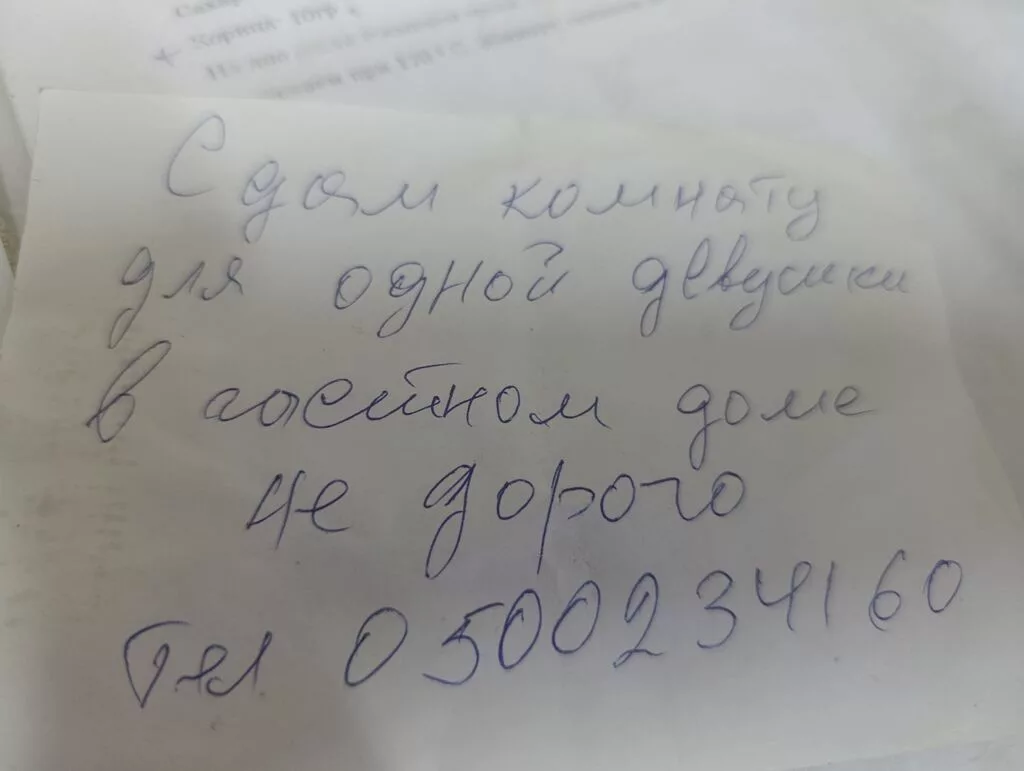 + Корица 10гр
Сдам комнату
для одной девушки
в гостном доме
не дорого
Тел 0500234160